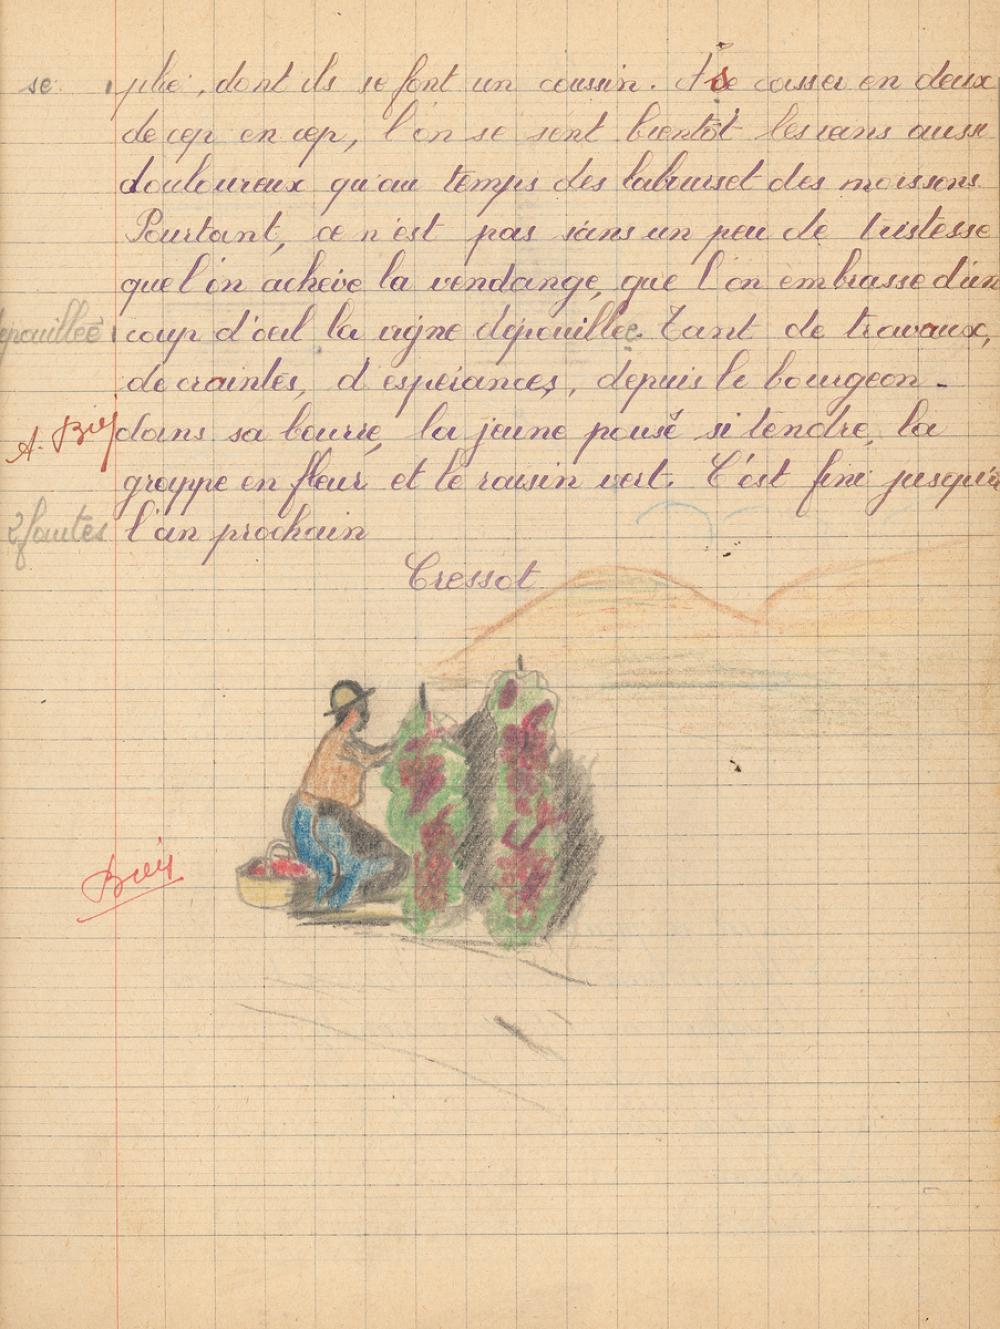 se plié, dont ils se font un coussin. A se casser en deux
de cep en cep, l'on se sent bientôt les reins aussi
douloureux qu'au temps des labourset des moissons
Pourtant, ce n'est pas sans un peu de tristesse
que l'on achève la vendange, que l'on embrasse d'un
dépouillée coup d'œil la vigne dépouillée. Tant de travaux,
de craintes, d'espérances, depuis le bourgeon
A. Bien dans sa bourre, la jeune pousé si tendre, la
grappe en fleur et le raisin vert. C'est fini jusqu'à
2 fautes l'an prochain
Cressot
Bien